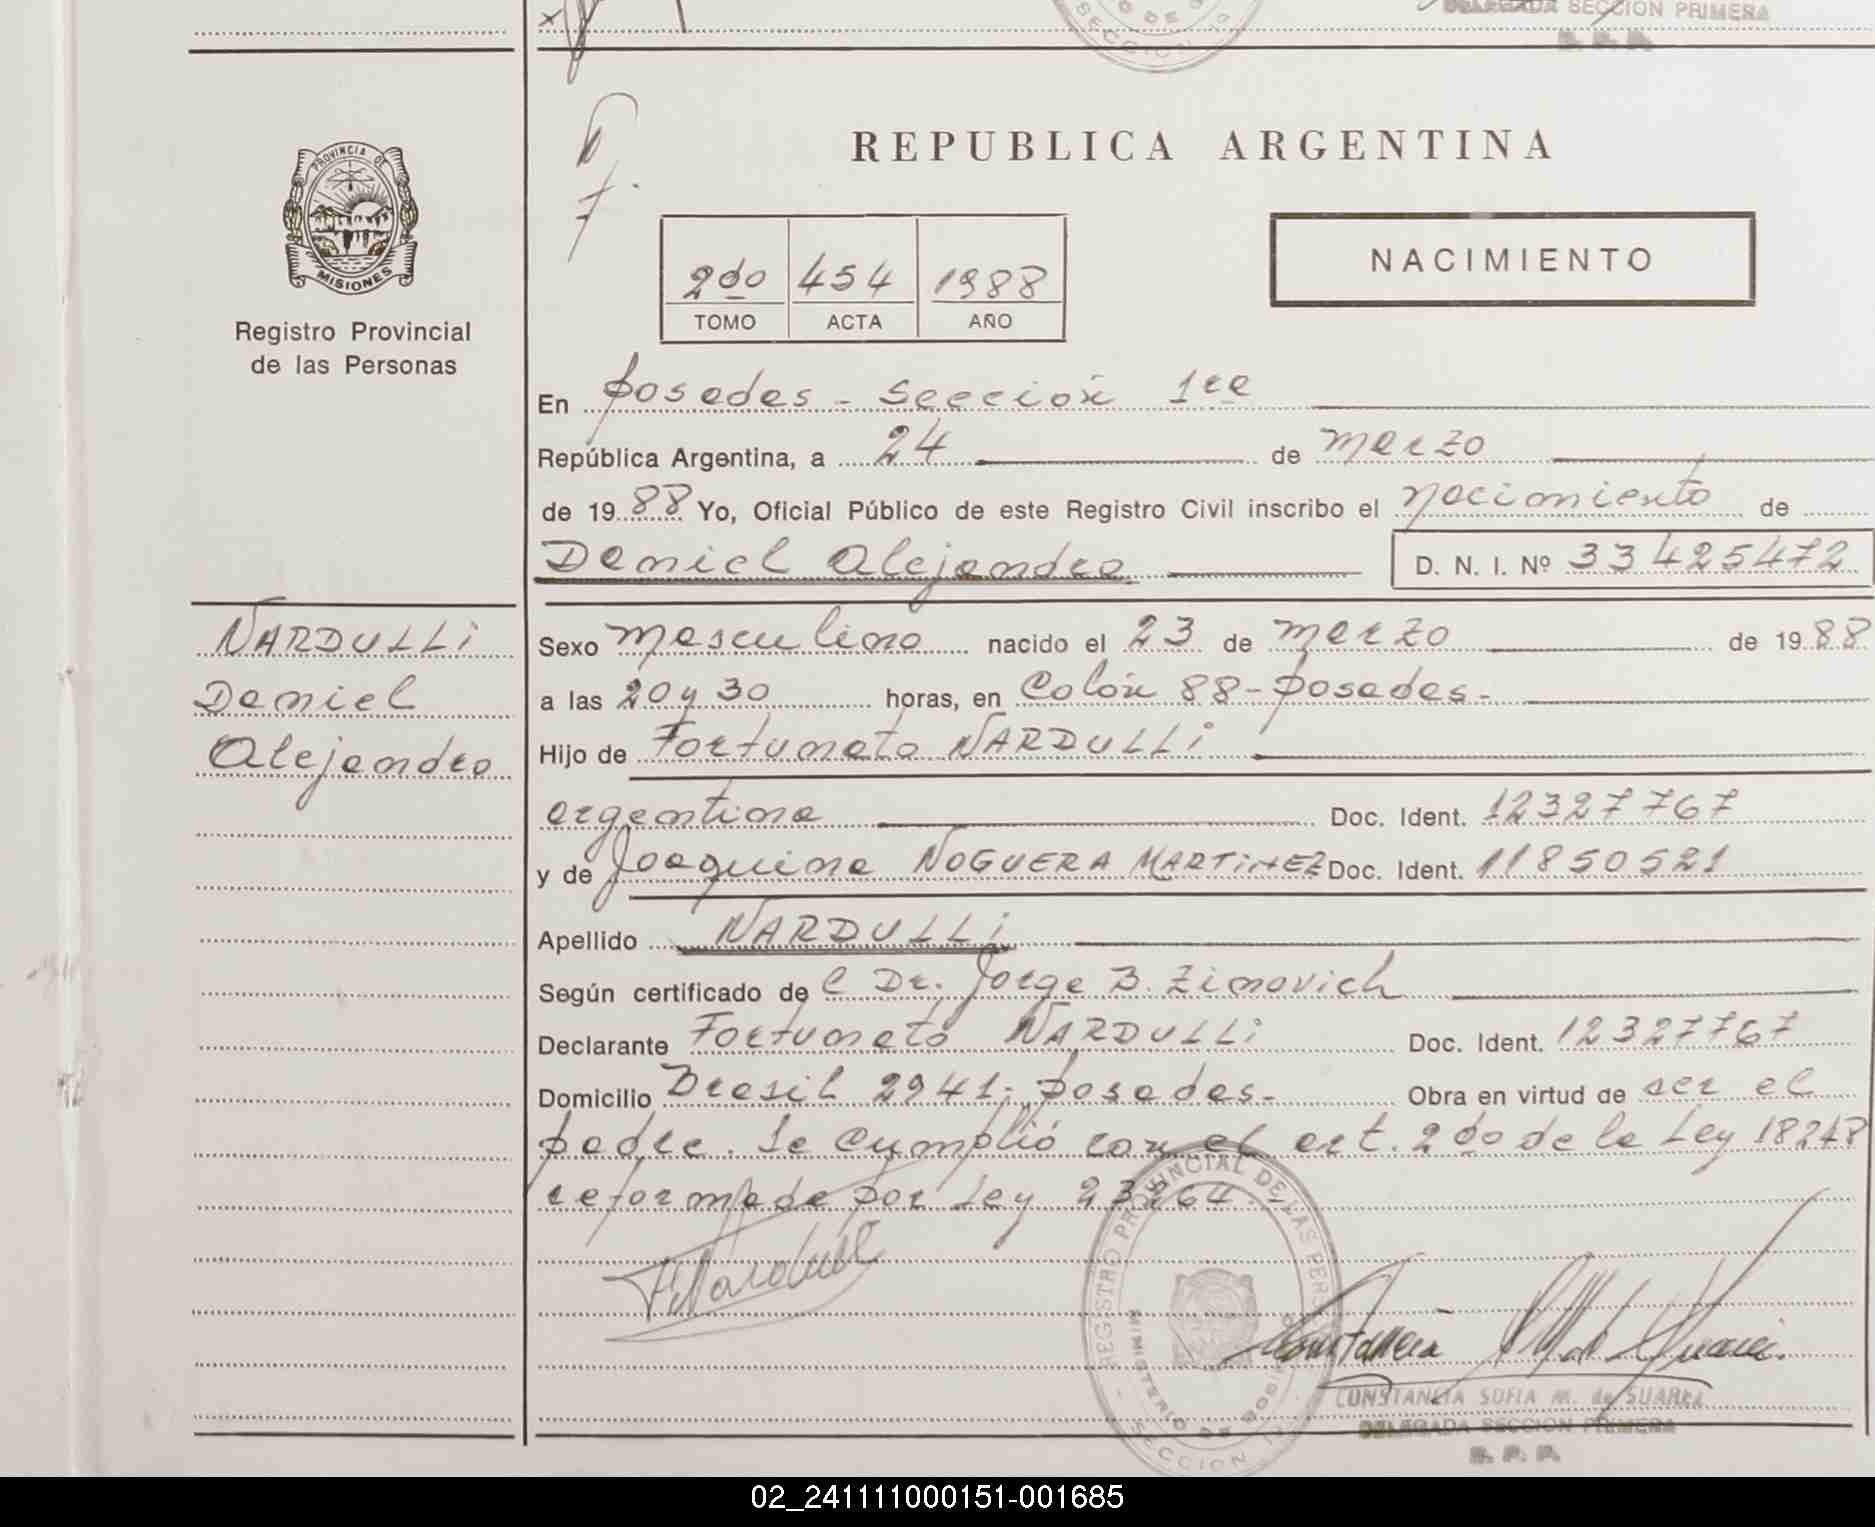 DELEGADA SECCION PRIMERA
R. P. P.
SECCION 1ª
PROVINCIA DE
MISIONES
Registro Provincial
de las Personas
REPUBLICA ARGENTINA
NACIMIENTO
2do 454 1988
TOMO ACTA AÑO
En Posadas - Sección 1ra
República Argentina, a 24 de marzo
de 1988 Yo, Oficial Público de este Registro Civil inscribo el nacimiento de
Daniel Alejandro D. N. I. Nº 33425472
NARDULLI
Daniel
Alejandro
Sexo masculino nacido el 23 de marzo de 1988
a las 20 y 30 horas, en Colón 88 - Posadas -
Hijo de Fortunato NARDULLI
argentino Doc. Ident. 12327767
y de Joaquina NOGUERA MARTINEZ Doc. Ident. 11850521
Apellido NARDULLI
Según certificado de el Dr. Jorge B. Zimovich
Declarante Fortunato NARDULLI Doc. Ident. 12327767
Domicilio Brasil 2941 - Posadas - Obra en virtud de ser el
padre. Se cumplió con el art. 2do de la Ley 18248
reformada por Ley 23264 -
REGISTRO PROVINCIAL DE LAS PERSONAS
MINISTERIO DE GOBIERNO
SECCION 1ª
CONSTANCIA SOFIA M. de SUAREZ
DELEGADA SECCION PRIMERA
R. P. P.
02_241111000151-001685